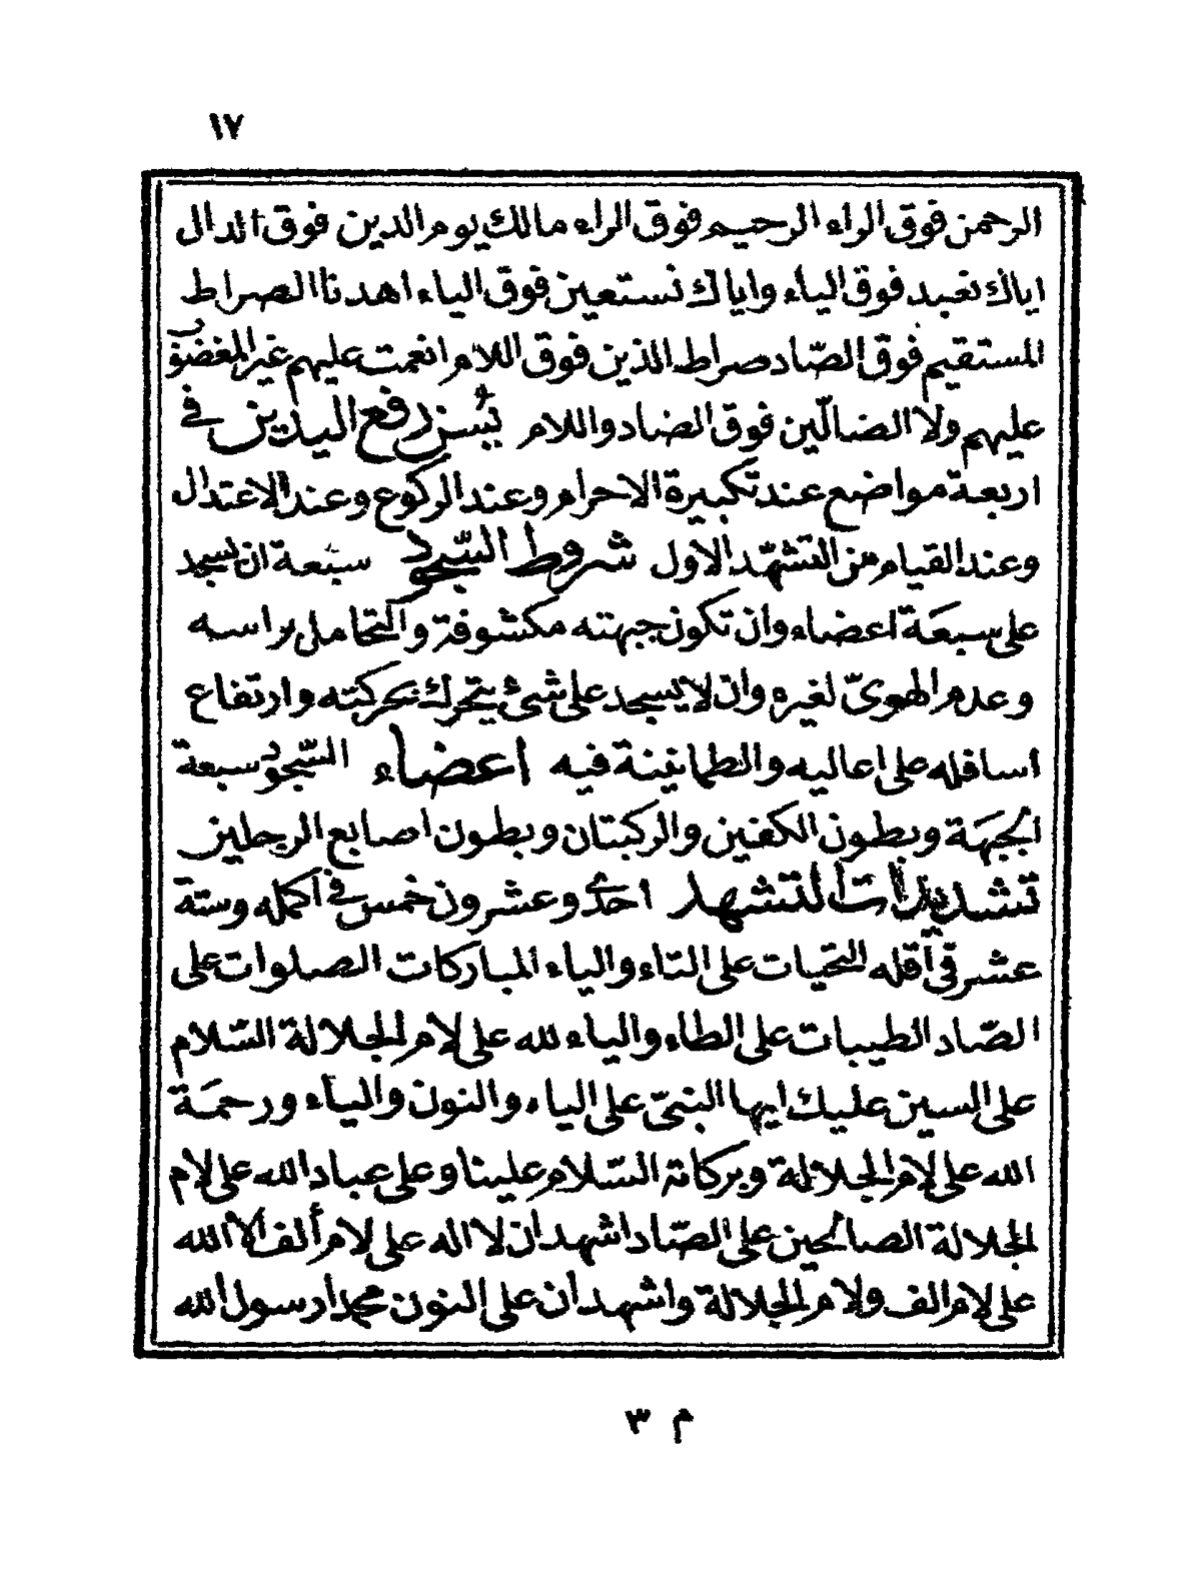 ١٧
الرحمن فوق الراء الرحيم فوق الراء مالك يوم الدين فوق الدال
اياك نعبد فوق الياء واياك نستعين فوق الياء اهدنا الصراط
المستقيم فوق الصّاد صراط الذين فوق اللام انعمت عليهم غير المغضوب
عليهم ولا الضالّين فوق الضاد واللام يُسَنّ رفع اليدين في
اربعة مواضع عند تكبيرة الاحرام وعند الركوع وعند الاعتدال
وعند القيام من التشهّد الاول شروط السّجود سبعة ان يسجد
على سبعة اعضاء وان تكون جبهته مكشوفة والتحامل براسه
وعدم الهويّ لغيره وان لا يسجد على شئ يتحرك بحركته وارتفاع
اسافله على اعاليه والطمانينة فيه اعضاء السّجود سبعة
الجبهة وبطون الكفين والركبتان وبطون اصابع الرجلين
تشديدات التشهد احدى وعشرون خمس في اكمله وستة
عشر في أقله التحيات على التاء والياء المباركات الصلوات على
الصّاد الطيبات على الطاء والياء لله على لام الجلالة السّلام
على السين عليك ايها النبيّ على الياء والنون والياء ورحمة
الله على لام الجلالة وبركاته السّلام علينا وعلى عباد الله على لام
الجلالة الصالحين على الصّاد اشهد ان لا اله على لام ألف الا الله
على لام الف ولام الجلالة واشهد ان على النون محمدا رسول الله
م ٣